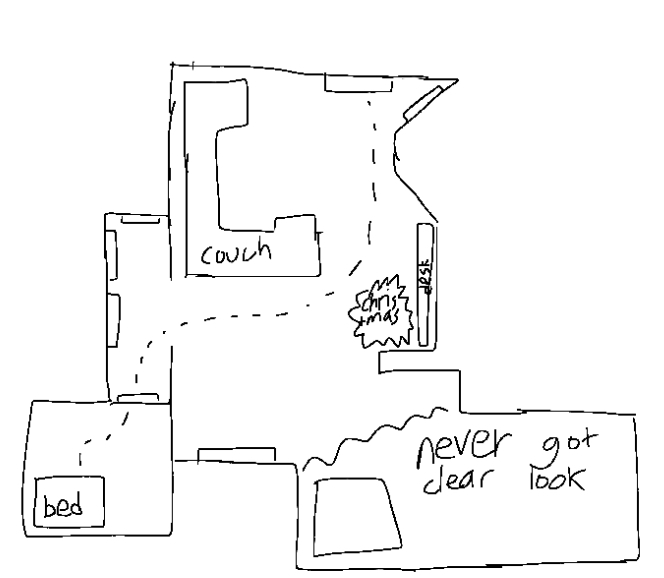 couch
desk
chris
tmas
never got
clear look
bed